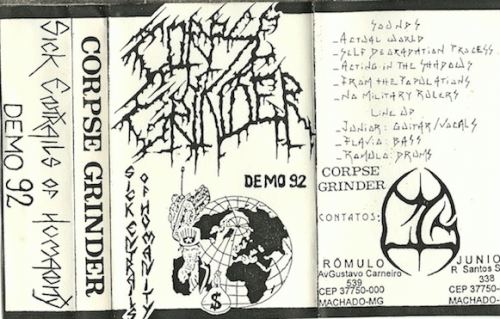 Sick Entrails of Humanity
DEMO 92
CORPSE GRINDER
CORPSE
GRINDER
DEMO 92
SICK ENTRAILS
OF HUMANITY
$
SOUNDS
_ACTUAL WORLD
_SELF DEGRADATION PROCESS
_ACTING IN THE SHADOWS
_FROM THE POPULATIONS
_NO MILITARY RULERS
LINE UP
_JUNIOR: GUITAR/VOCALS
_FLAVIO: BASS
_ROMULO: DRUMS
CORPSE
GRINDER
CONTATOS:
RÔMULO
AvGustavo Carneiro
539
CEP 37750-000
MACHADO-MG
JUNIO
R Santos S
338
CEP 37750-
MACHADO-